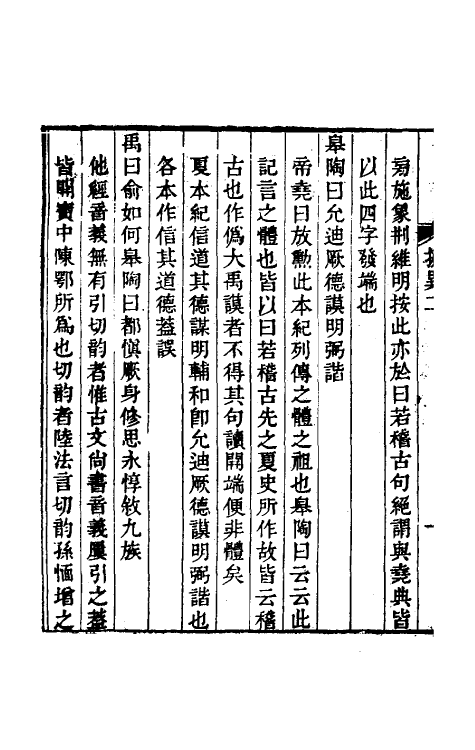 施象刑維明按此亦於曰若稽古句絕謂與堯典皆
以此四字發端也
皋陶曰允迪厥德謨明弼諧
帝堯曰放勳此本紀列傳之體之祖也皋陶曰云云此
記言之體也皆以曰若稽古先之夏史所作故皆云稽
古也作僞大禹謨者不得其句讀開端便非體矣
夏本紀信道其德謀明輔和卽允迪厥德謨明弼諧也
各本作信其道德葢誤
禹曰俞如何皋陶曰都愼厥身修思永惇敘九族
他經音義無有引切韵者惟古文尙書音義屢引之葢
皆開寶中陳鄂所爲也切韵者陸法言切韵孫愐增之